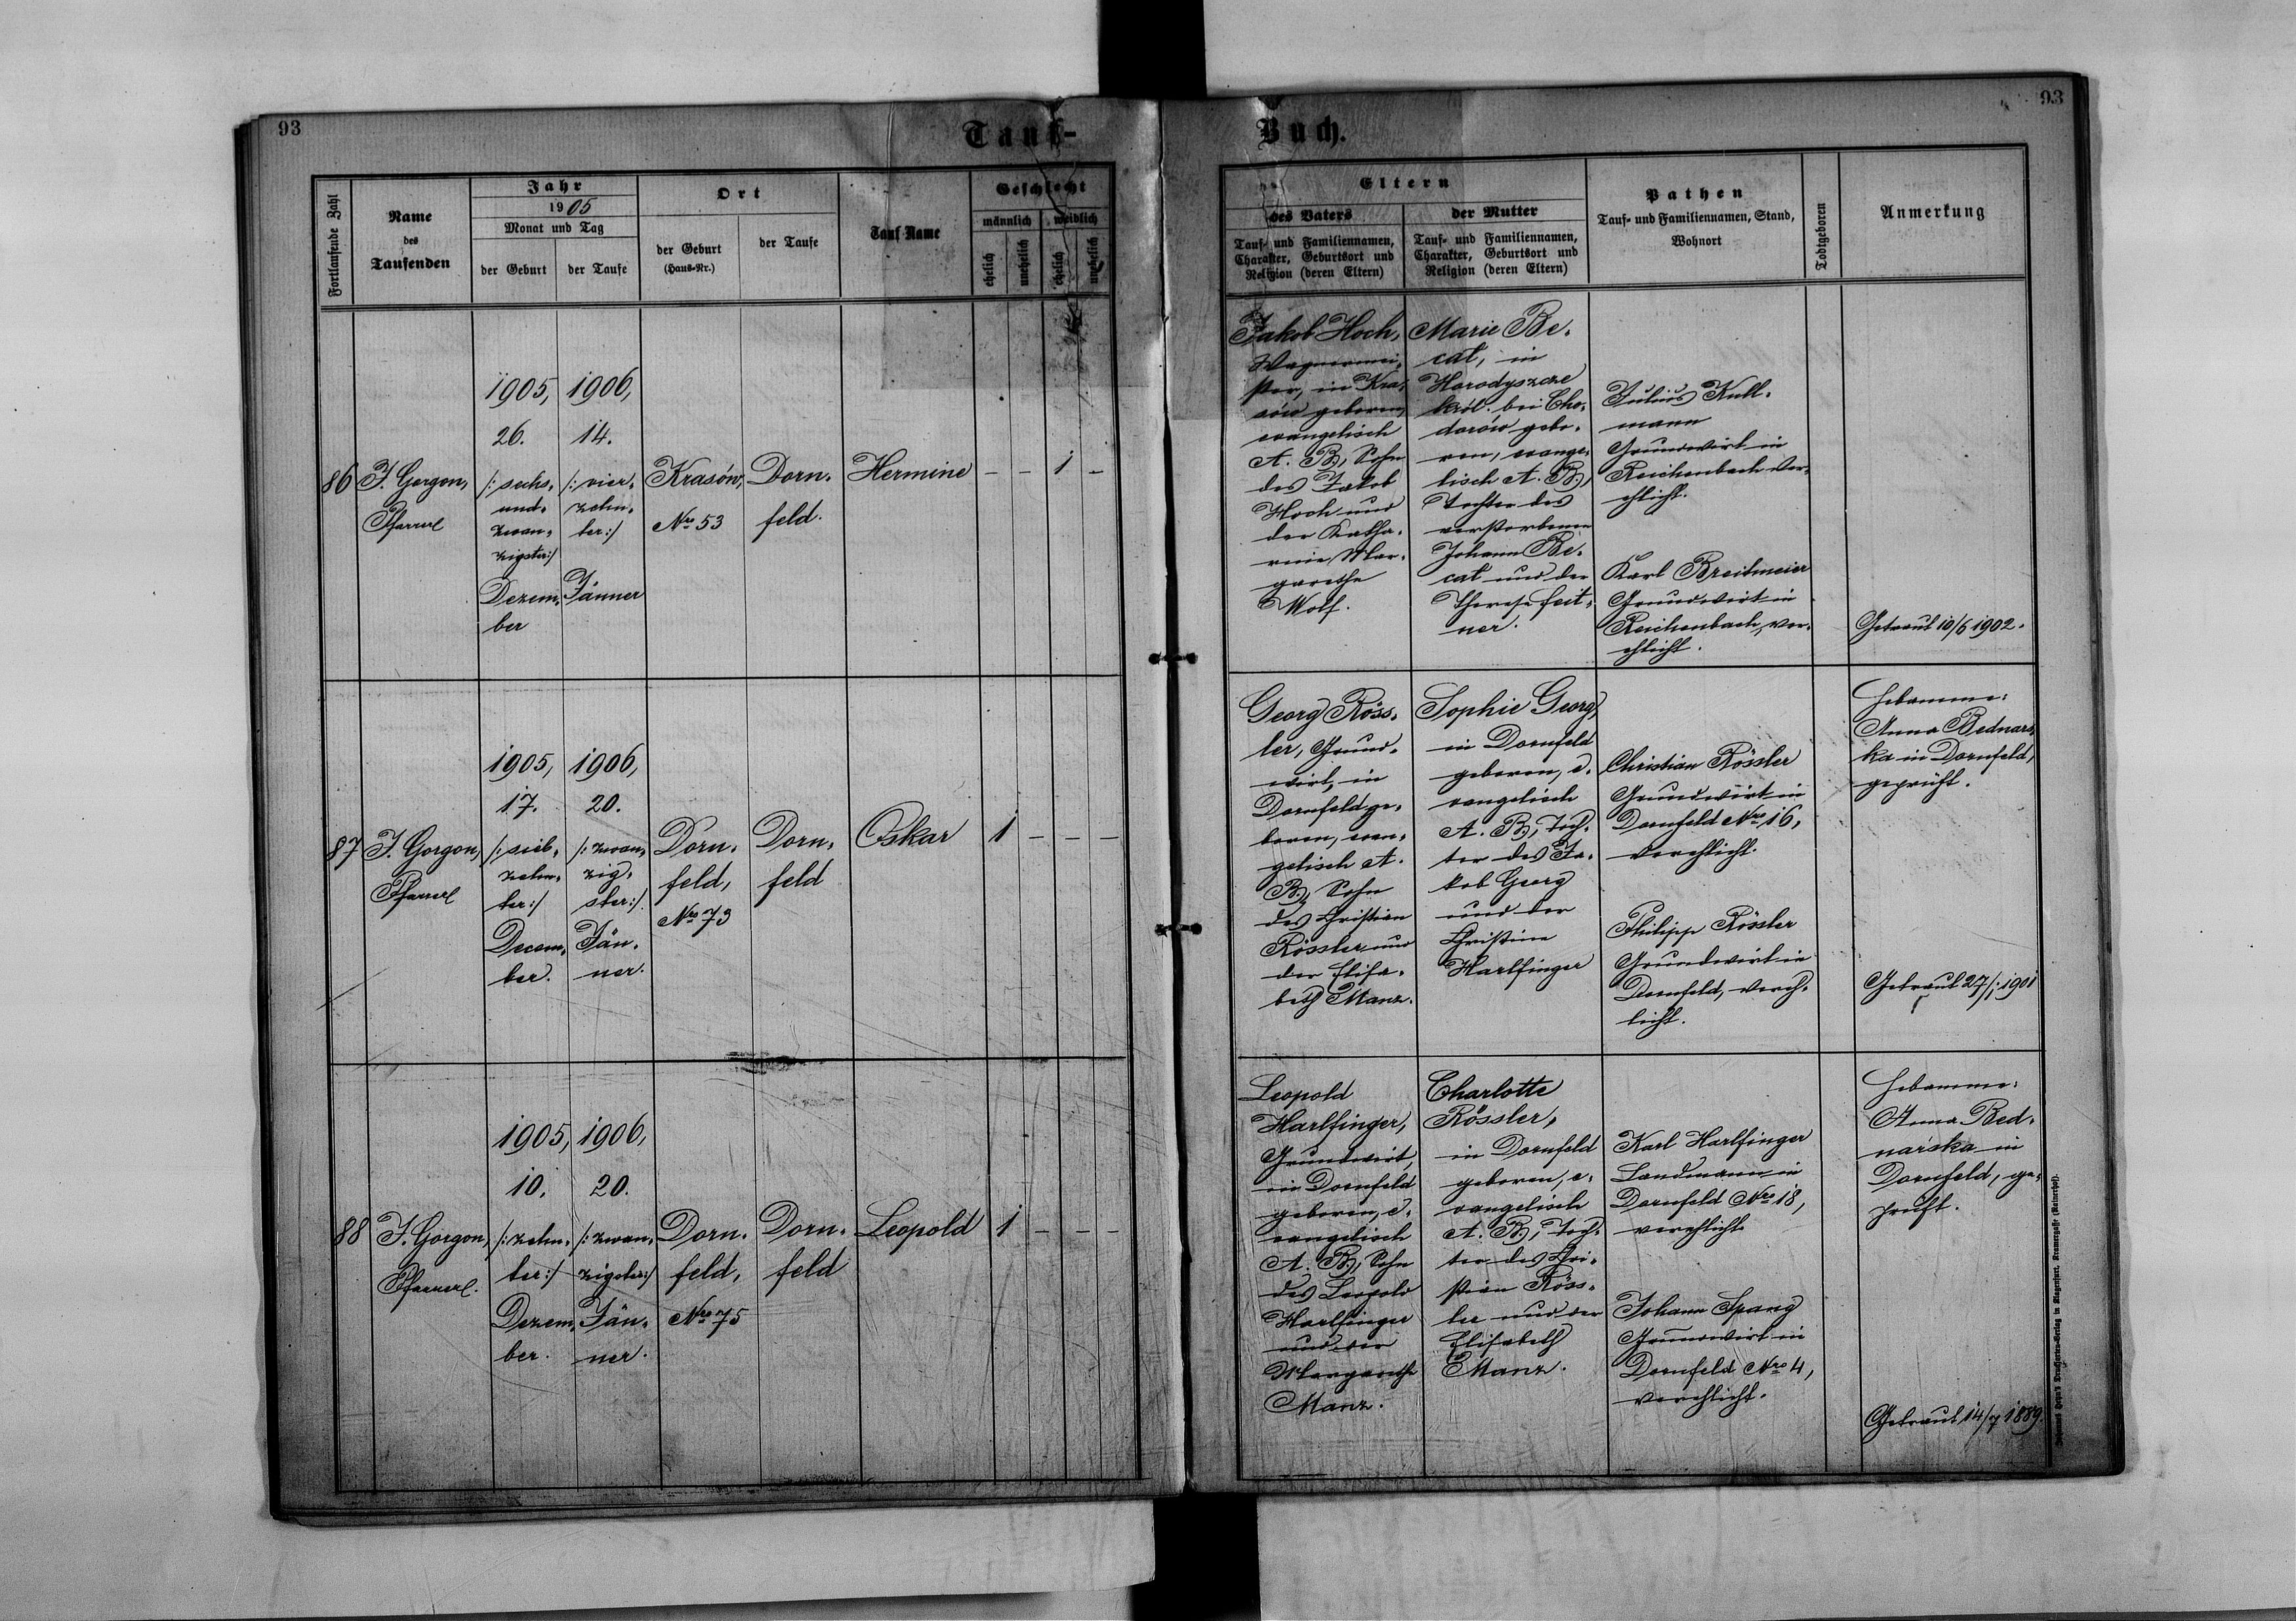 93
Tauf-
Buch.
93
Fortlaufende Zahl
Name
des
Taufenden
Jahr
1905
Monat und Tag
der Geburt
der Taufe
Ort
der Geburt
(Haus-Nr.)
der Taufe
Tauf-Name
Geschlecht
männlich
weiblich
ehelich
unehelich
ehelich
unehelich
Eltern
des Vaters
Tauf- und Familiennamen,
Charakter, Geburtsort und
Religion (deren Eltern)
der Mutter
Tauf- und Familiennamen,
Charakter, Geburtsort und
Religion (deren Eltern)
Pathen
Tauf- und Familiennamen, Stand,
Wohnort
Todtgeboren
Anmerkung
86
J. Gorgon,
Pfarrer
1905,
26.
/: sechs-
und-
zwan-
zigster :/
Dezem-
ber
1906,
14.
/: vier-
zehn-
ter :/
Jänner
Krasów,
Nro 53
Dorn-
feld.
Hermine
-
-
1
-
Jakob Hoch,
Wagnermei-
ster, in Kra-
sów geboren,
evangelisch
A. B., Sohn
des Jakob
Hoch und
der Katha-
rine Mar-
garethe
Wolf.
Marie Be-
cat, in
Horodyszcze
król. bei Cho-
dorów gebo-
ren, evange-
lisch A. B.,
Tochter des
verstorbenen
Johann Be-
cat und der
Therese Feit-
ner.
Julius Kull-
mann
Grundwirt in
Reichenbach ver-
ehlicht.
Karl Breitmeier
Grundwirt in
Reichenbach, ver-
ehlicht.
Getraut 10/6 1902.
87
J. Gorgon,
Pfarrer
1905,
17.
/: sieb-
zehn-
ter :/
Decem-
ber.
1906,
20.
/: zwan-
zig-
ster :/
Jän-
ner.
Dorn-
feld,
Nro 73
Dorn-
feld
Oskar
1
-
-
-
Georg Röss-
ler, Grund-
wirt, in
Dornfeld ge-
boren, evan-
gelisch A.
B., Sohn
des Christian
Rössler und
der Elisa-
beth Manz.
Sophie Georg,
in Dornfeld
geboren, e-
vangelisch
A. B., Toch-
ter des Ja-
kob Georg
und der
Christine
Harlfinger
Christian Rössler
Grundwirt in
Dornfeld Nro 16,
verehlicht.
Philipp Rössler
Grundwirt in
Dornfeld, vereh-
licht.
Hebamme:
Anna Bednars-
ka in Dornfeld,
geprüft.
Getraut 27/1 1901
88
J. Gorgon,
Pfarrer.
1905,
10.
/: zehn-
ter :/
Dezem-
ber.
1906,
20.
/: zwan-
zigster :/
Jän-
ner.
Dorn-
feld,
Nro 75
Dorn-
feld
Leopold
1
-
-
-
Leopold
Harlfinger,
Grundwirt,
in Dornfeld
geboren, e-
vangelisch
A. B., Sohn
des Leopold
Harlfinger
und der
Margarethe
Manz.
Charlotte
Rössler,
in Dornfeld
geboren, e-
vangelisch
A. B., Toch-
ter des Chri-
stian Röss-
ler und der
Elisabeth
Manz.
Karl Harlfinger
Landmann in
Dornfeld Nro 18,
verehlicht
Johann Spang
Grundwirt in
Dornfeld Nro 4,
verehlicht.
Hebamme:
Anna Bed-
narska in
Dornfeld, ge-
prüft.
Getraut 14/7 1889.